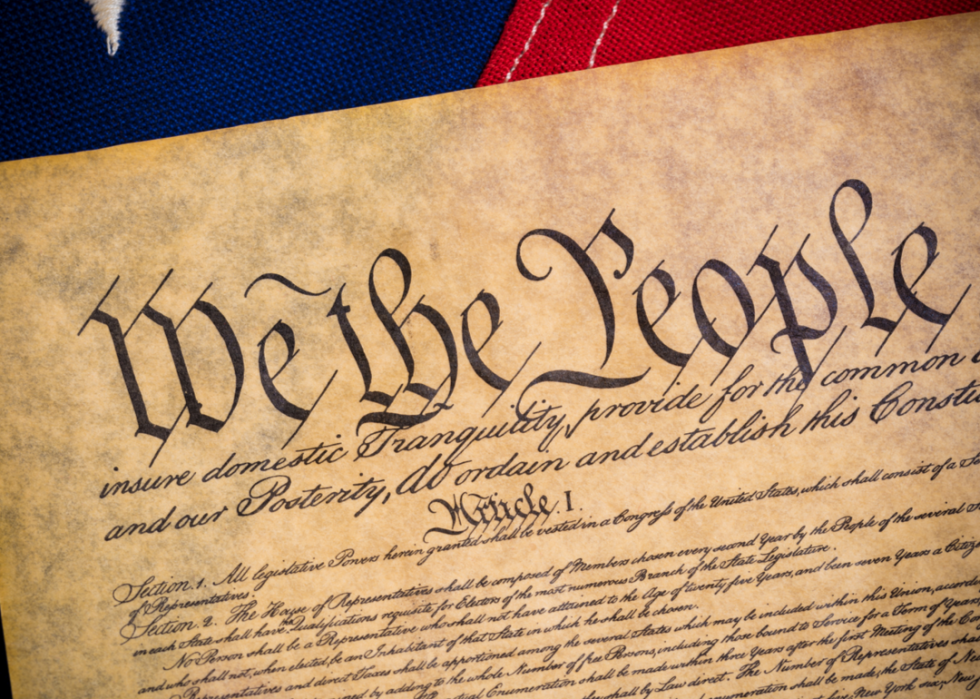 We the People
insure domestic Tranquility, provide for the common
and our Posterity, do ordain and establish this
Article. I.
Section. 1. All legislative Powers herein granted shall be vested in a Congress of the United States, which shall consist of a
of Representatives.
Section. 2. The House of Representatives shall be composed of Members chosen every second Year by the People of the several
in each State shall have the Qualifications requisite for Electors of the most numerous Branch of the State Legislature.
No Person shall be a Representative who shall not have attained to the Age of twenty five Years, and been seven Years a
and who shall not, when elected, be an Inhabitant of that State in which he shall be chosen.
Representatives and direct Taxes shall be apportioned among the several States which may be included within this Union,
by adding to the whole Number of free Persons, including those bound to Service for a Term of
Enumeration shall be made within three Years after the first Meeting of the
shall by Law direct. The Number of Representatives shall
shall be made, the State of